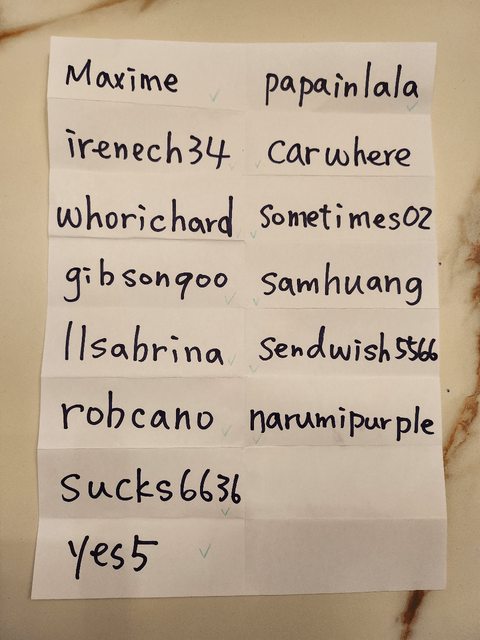 Maxime
papainlala
irenech34
carwhere
whorichard
sometimes02
gibsonqoo
samhuang
llsabrina
sendwish5566
robcano
narumipurple
sucks6636
yes5